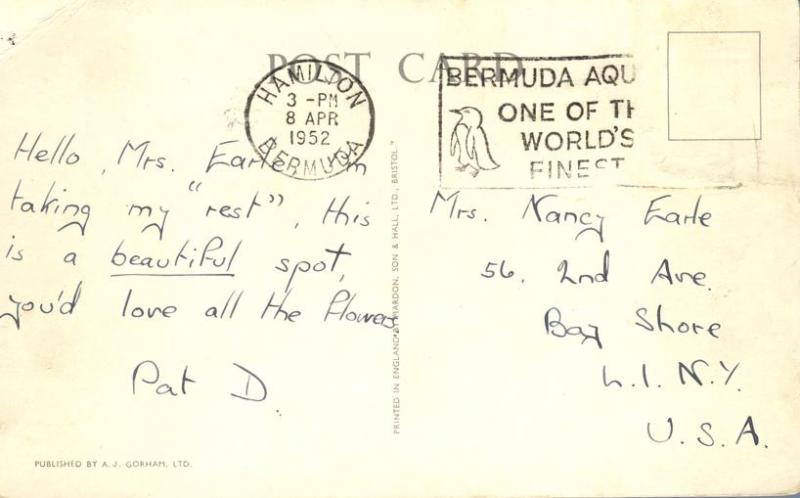 POST CARD
HAMILTON
3 -PM
8 APR
1952
BERMUDA
BERMUDA AQU
ONE OF TH
WORLD'S
FINEST
Hello, Mrs. Earle
taking my "rest", this
is a beautiful spot,
you'd love all the flowers
Pat D.
PUBLISHED BY A. J. GORHAM, LTD.
PRINTED IN ENGLAND BY MARDON, SON & HALL, LTD., BRISTOL.
Mrs. Nancy Earle
56. 2nd Ave.
Bay Shore
L.I. N.Y.
U.S.A.